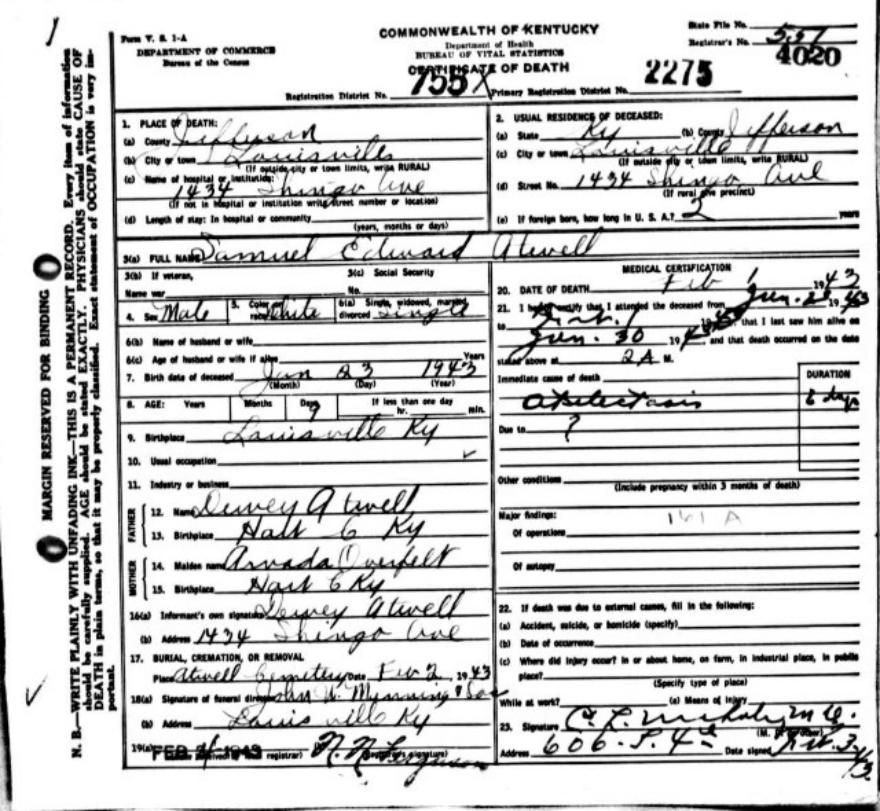 Form V. S. 1-A
DEPARTMENT OF COMMERCE
Bureau of the Census
COMMONWEALTH OF KENTUCKY
Department of Health
BUREAU OF VITAL STATISTICS
CERTIFICATE OF DEATH
State File No.
Registrar's No. 557
4020
Registration District No. 755X Primary Registration District No. 2275
MARGIN RESERVED FOR BINDING
N. B.—WRITE PLAINLY WITH UNFADING INK—THIS IS A PERMANENT RECORD. Every item of information
should be carefully supplied. AGE should be stated EXACTLY. PHYSICIANS should state CAUSE OF
DEATH in plain terms, so that it may be properly classified. Exact statement of OCCUPATION is very im-
portant.
1. PLACE OF DEATH:
(a) County Jefferson
(b) City or town Louisville
(If outside city or town limits, write RURAL)
(c) Name of hospital or institution:
1434 Shingo Ave
(If not in hospital or institution write street number or location)
(d) Length of stay: In hospital or community
(years, months or days)
2. USUAL RESIDENCE OF DECEASED:
(a) State Ky (b) County Jefferson
(c) City or town Louisville
(If outside city or town limits, write RURAL)
(d) Street No. 1434 Shingo Ave
(If rural give precinct)
(e) If foreign born, how long in U. S. A.? 2 years
3(a) FULL NAME Samuel Edward Atwell
3(b) If veteran,
Name war
3(c) Social Security
No.
4. Sex Male 5. Color or race White 6(a) Single, widowed, married, divorced Single
6(b) Name of husband or wife
6(c) Age of husband or wife if alive Years
7. Birth date of deceased Jan 23 1943
(Month) (Day) (Year)
8. AGE: Years Months Days 9 If less than one day
hr. min.
9. Birthplace Louisville Ky
10. Usual occupation
11. Industry or business
FATHER
12. Name Dewey Atwell
13. Birthplace Hart C Ky
MOTHER
14. Maiden name Arvada Overfelt
15. Birthplace Hart C Ky
16(a) Informant's own signature Dewey Atwell
(b) Address 1434 Shingo Ave
17. BURIAL, CREMATION, OR REMOVAL
Place Atwell Cemetery Date Feb 2, 1943
18(a) Signature of funeral director John W. Manning & Son
(b) Address Louisville Ky
19(a) FEB 2/1943
(Date received by local registrar) (Registrar's signature)
MEDICAL CERTIFICATION
20. DATE OF DEATH Feb 1 1943
21. I hereby certify that I attended the deceased from Jan. 1943
to Feb. 1 1943, that I last saw him alive on
Jan. 30 1943, and that death occurred on the date
stated above at 2A M.
Immediate cause of death
DURATION
atelectasis days
Due to ?
Other conditions
(Include pregnancy within 3 months of death)
Major findings: 161 A
Of operations
Of autopsy
22. If death was due to external causes, fill in the following:
(a) Accident, suicide, or homicide (specify)
(b) Date of occurrence
(c) Where did injury occur? In or about home, on farm, in industrial place, in public
place?
(Specify type of place)
While at work? (e) Means of injury
23. Signature C. L.
(M. D. or other)
Address 606 S. 4th Date signed